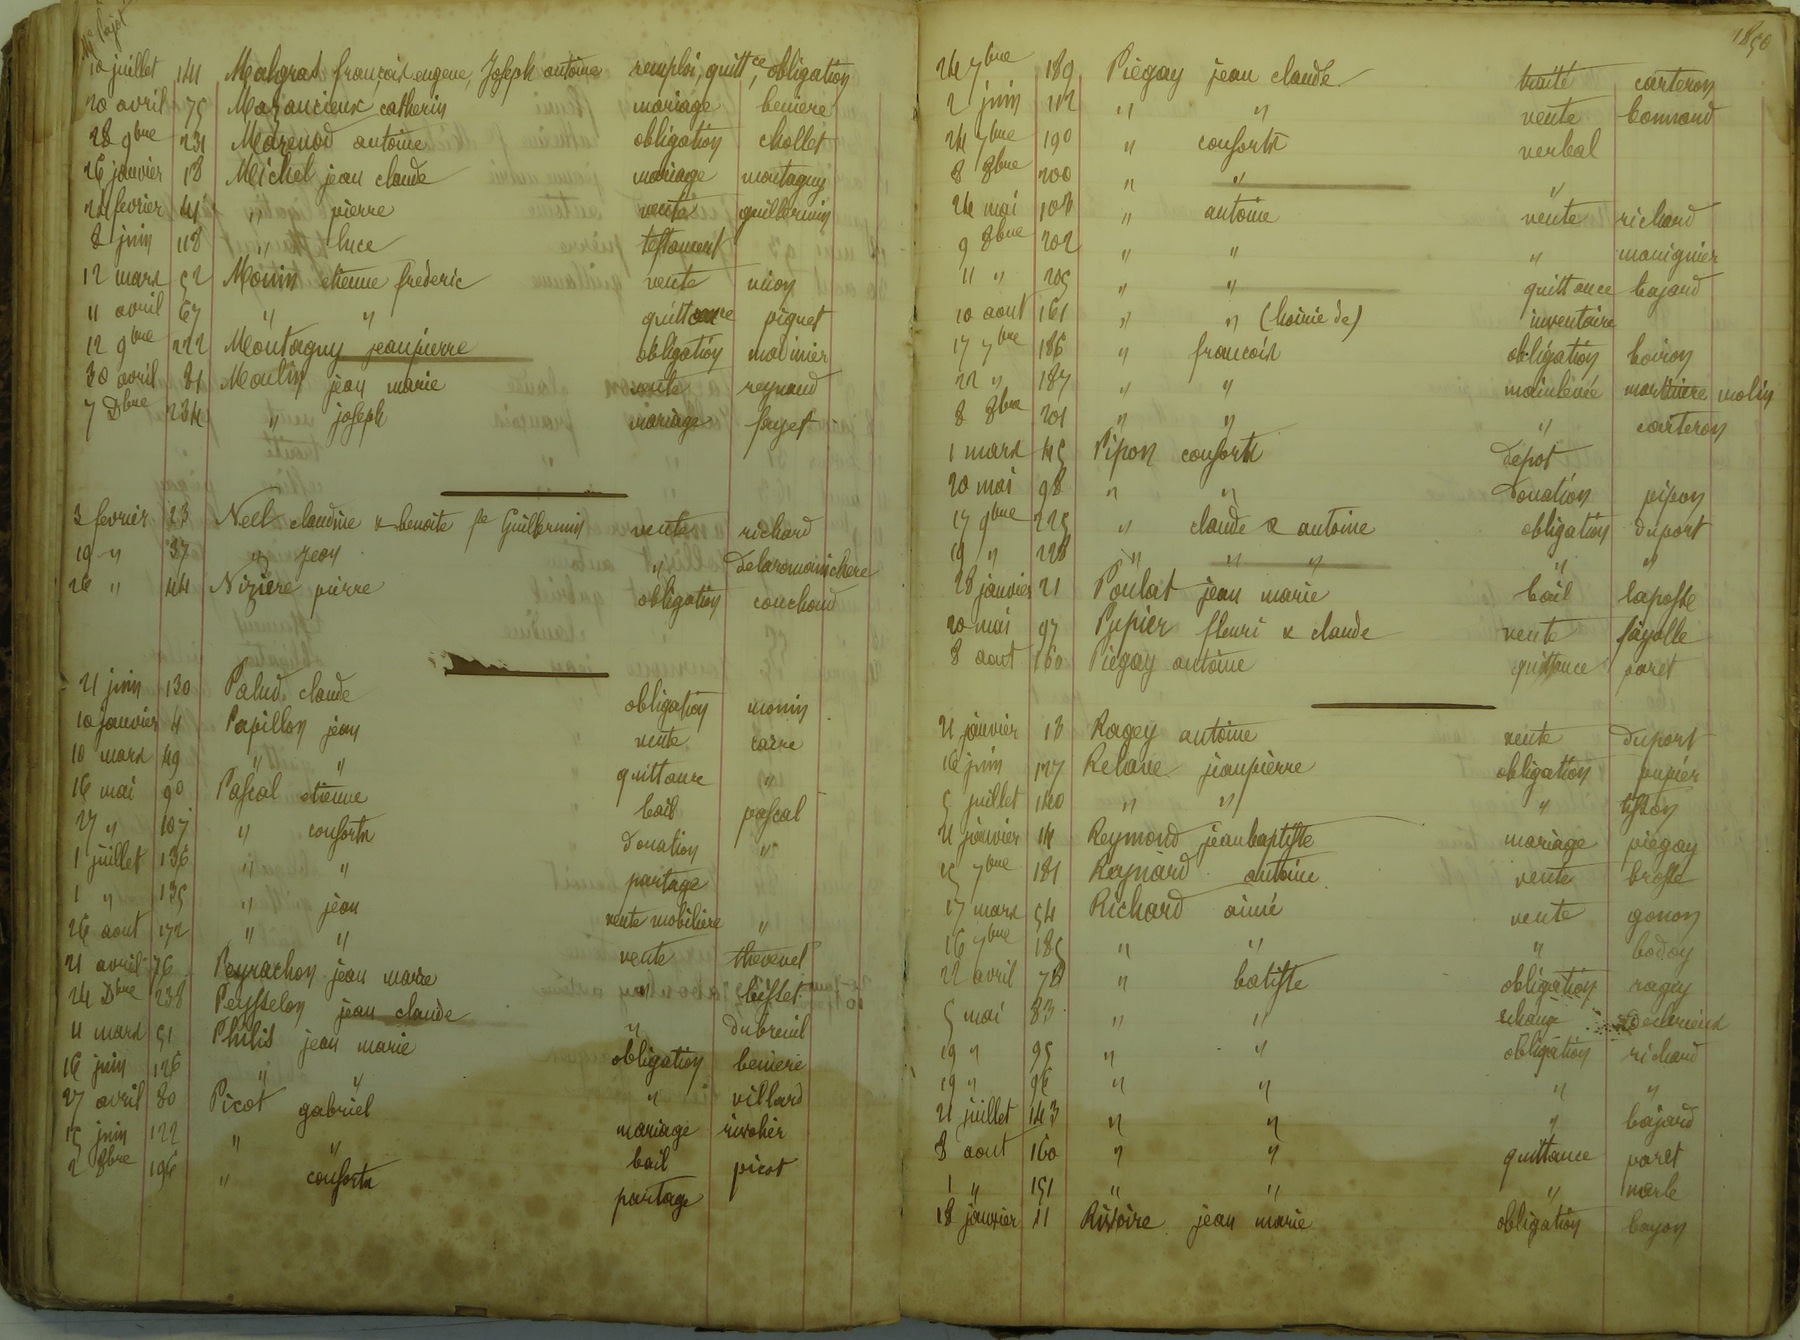 Me Pajot
10 juillet 141 Malgras françois eugene, Joseph antoine remploi, quittce, obligation
20 avril 75 Mazancieux catherin mariage beniere
28 9bre 231 Mazenod antoine obligation chollet
26 janvier 18 Michel jean claude mariage montagny
24 fevrier 41 " pierre vente guillermin
8 juin 118 " luce testament
12 mars 52 Monin etienne fréderic vente
11 avril 67 " " quittance piquet
12 9bre 222 Montagny jeanpierre obligation
30 avril 81 Moulin jean marie vente reynaud
7 Dbre 234 " joseph mariage fayet
3 fevrier 23 Neel claudine & benoite fe Guillermin vente richard
19 " 37 " jean "
26 " 44 Niziere pierre obligation couchoud
21 juin 130 Palud claude obligation monin
10 janvier 4 Papillon jean vente
10 mars 49 " " quittance "
16 mai 90 Pascal etienne bail pascal
27 " 107 " consorts donation "
1 juillet 136 " " partage
1 " 135 " jean vente mobiliere "
26 aout 172 " " vente thevenet
21 avril 76 Peyrachon jean marie "
24 Dbre 238 Peysselon jean claude " dubreuil
11 mars 51 Philis jean marie obligation beniere
16 juin 126 " " " villard
27 avril 80 Picot gabriel mariage rivoher
15 juin 122 " " bail picot
2 8bre 196 " consorts partage
1850
24 7bre 189 Piégay jean claude traité carteron
2 juin 112 " " vente bonnand
24 7bre 190 " consorts verbal
8 8bre 200 " " "
24 mai 103 " antoine vente richard
9 8bre 202 " " "
11 " 205 " " quittance bajard
10 aout 161 " " (hoirie de) inventaire
17 7bre 186 " françois obligation boiron
22 " 187 " " mainlévée molin
8 8bre 201 " " " carteron
1 mars 45 Pipon consorts dépot
20 mai 98 " " Donation pipon
17 9bre 225 " claude & antoine obligation duport
19 " 228 " " " " "
28 janvier 21 Poulat jean marie bail laposse
20 mai 97 Pupier fleuri & claude vente fayolle
8 aout 160 Piégay antoine quittance paret
21 janvier 13 Ragey antoine vente duport
16 juin 127 Relave jeanpierre obligation pupier
5 juillet 140 " " " tisson
21 janvier 14 Reymond jeanbaptiste mariage piegay
15 7bre 181 Reynard antoine vente brosse
17 mars 54 Richard aimé vente gonon
16 7bre 185 " " " badoy
22 avril 78 " batiste obligation ragey
5 mai 83 " " echange
19 " 95 " " obligation richard
19 " 96 " " " "
21 juillet 143 " " " bajard
8 aout 160 " " quittance paret
1 " 151 " " " merle
18 janvier 11 Rivoire jean marie obligation bayon